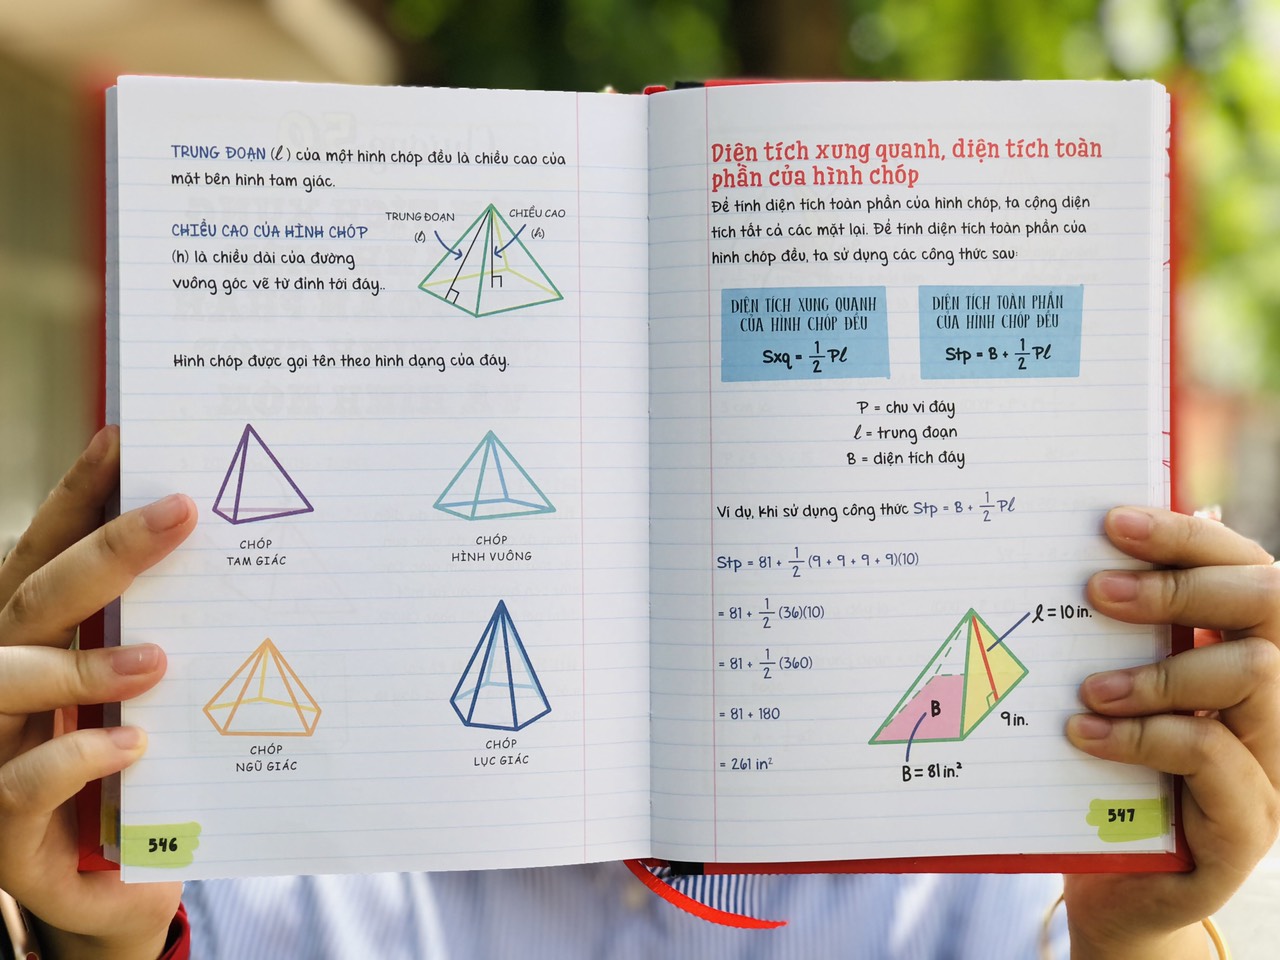 TRUNG ĐOẠN (ℓ) của một hình chóp đều là chiều cao của
mặt bên hình tam giác.
CHIỀU CAO CỦA HÌNH CHÓP
(h) là chiều dài của đường
vuông góc vẽ từ đỉnh tới đáy..
TRUNG ĐOẠN
(ℓ)
CHIỀU CAO
(h)
Hình chóp được gọi tên theo hình dạng của đáy.
CHÓP
TAM GIÁC
CHÓP
HÌNH VUÔNG
CHÓP
NGŨ GIÁC
CHÓP
LỤC GIÁC
546
Diện tích xung quanh, diện tích toàn
phần của hình chóp
Để tính diện tích toàn phần của hình chóp, ta cộng diện
tích tất cả các mặt lại. Để tính diện tích toàn phần của
hình chóp đều, ta sử dụng các công thức sau:
DIỆN TÍCH XUNG QUANH
CỦA HÌNH CHÓP ĐỀU
Sxq = 1/2 Pℓ
DIỆN TÍCH TOÀN PHẦN
CỦA HÌNH CHÓP ĐỀU
Stp = B + 1/2 Pℓ
P = chu vi đáy
ℓ = trung đoạn
B = diện tích đáy
Ví dụ, khi sử dụng công thức Stp = B + 1/2 Pℓ
Stp = 81 + 1/2 (9 + 9 + 9 + 9)(10)
= 81 + 1/2 (36)(10)
= 81 + 1/2 (360)
= 81 + 180
= 261 in²
ℓ = 10 in.
B
9 in.
B = 81 in.²
547